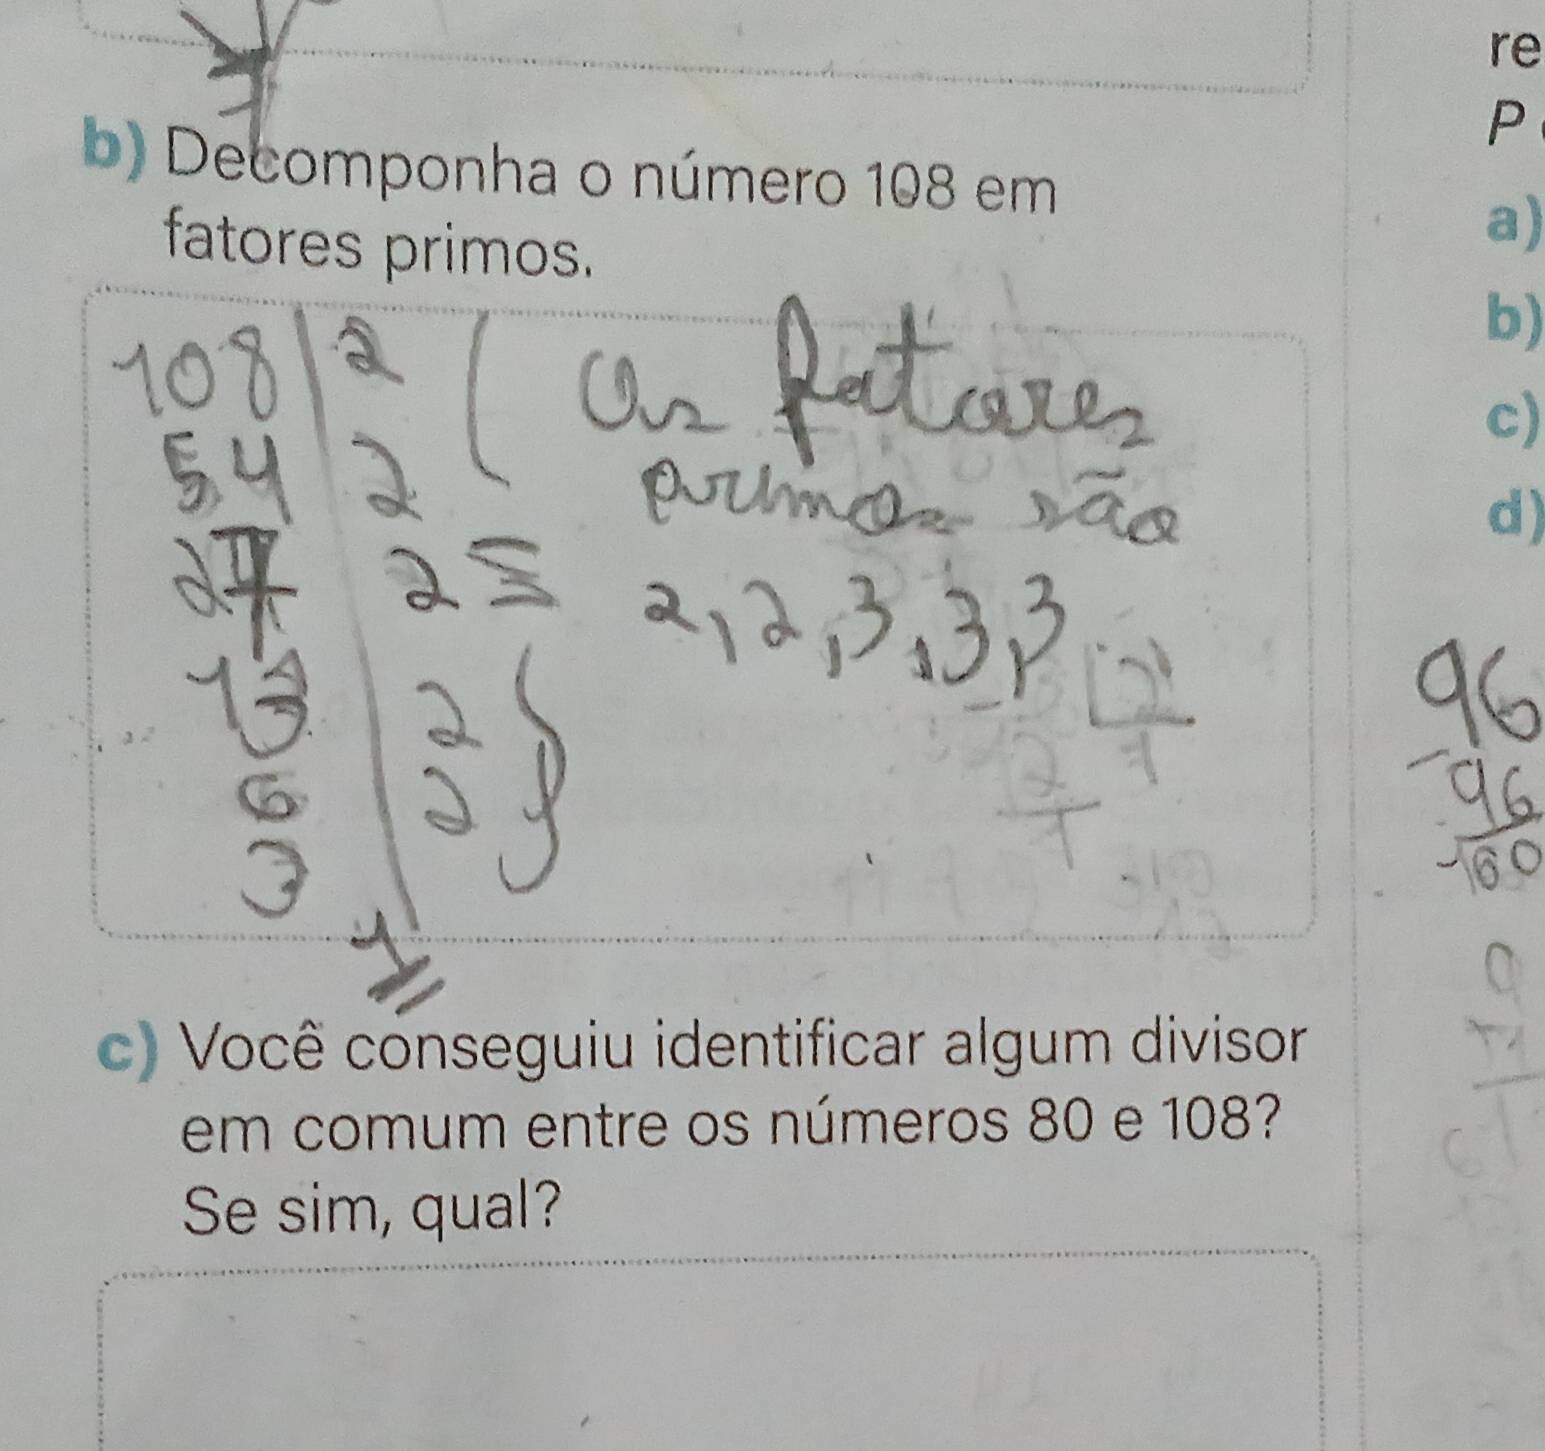 b) Decomponha o número 108 em
fatores primos.
108 2
54 2
27 2
13 2
6 2
3
1
Os fatores
primos são
2,2,3,3,3
c) Você conseguiu identificar algum divisor
em comum entre os números 80 e 108?
Se sim, qual?
re
P
a)
b)
c)
d)
96
-96